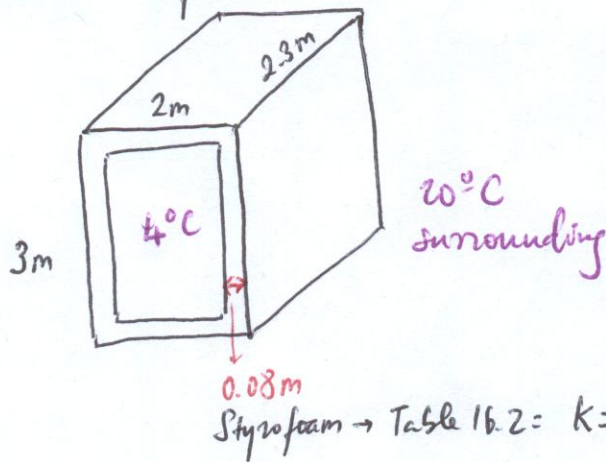 2.3m
2m
4°C
20°C
surrounding
3m
0.08m
Styrofoam → Table 16.2 = K=